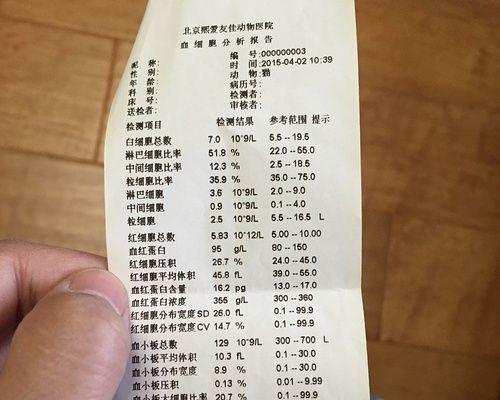 北京熙爱友佳动物医院
血细胞分析报告
编 号:000000003
昵 称: 时 间:2015-04-02 10:39
性 别: 动 物:猫
年 龄: 病历号:
科 别: 检测者:
床 号: 审核者:
送检者:
检测项目 检测结果 参考范围 提示
白细胞总数 7.0 10^9/L 5.5 -- 19.5
淋巴细胞比率 51.8 % 22.0 -- 55.0
中间细胞比率 12.3 % 2.5 -- 18.5
粒细胞比率 35.9 % 35.0 -- 75.0
淋巴细胞 3.6 10^9/L 2.0 -- 9.0
中间细胞 0.9 10^9/L 0.1 -- 4.0
粒细胞 2.5 10^9/L 5.5 -- 16.5 L
红细胞总数 5.83 10^12/L 5.00 -- 10.00
血红蛋白 95 g/L 80 -- 150
红细胞压积 26.7 % 24.0 -- 45.0
红细胞平均体积 45.8 fL 39.0 -- 55.0
血红蛋白含量 16.2 pg 13.0 -- 17.0
血红蛋白浓度 355 g/L 300 -- 360
红细胞分布宽度SD 26.0 fL 0.1 -- 99.9
红细胞分布宽度CV 14.7 % 0.1 -- 99.9
血小板总数 129 10^9/L 300 -- 700 L
血小板平均体积 10.3 fL 0.1 -- 30.0
血小板分布宽度 8.9 % 0.1 -- 30.0
血小板压积 0.13 % 0.01 -- 9.99
血小板大细胞比率 20.7 % 0.1 -- 99.9